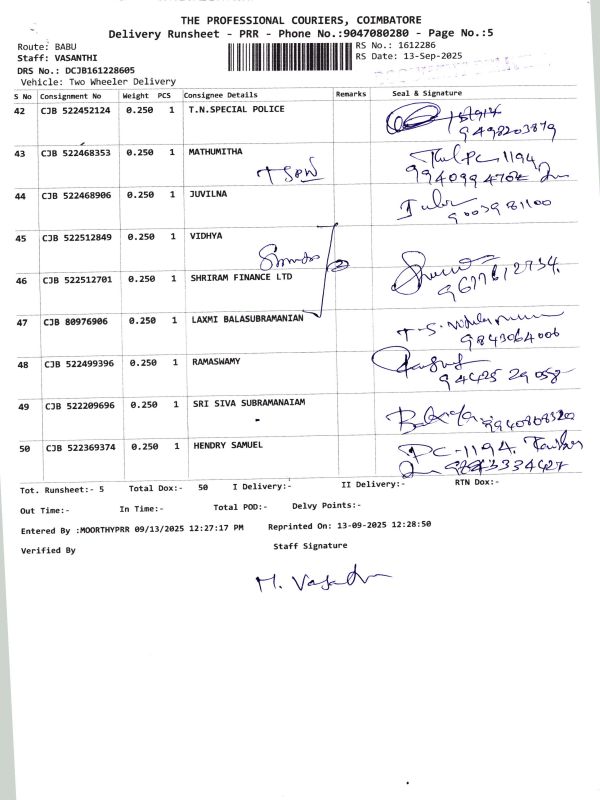 THE PROFESSIONAL COURIERS, COIMBATORE
Delivery Runsheet - PRR - Phone No.:9047080280 - Page No.:5
Route: BABU
RS No.: 1612286
Staff: VASANTHI
RS Date: 13-Sep-2025
DRS No.: DCJB161228605
Vehicle: Two Wheeler Delivery
S No Consignment No Weight PCS Consignee Details Remarks Seal & Signature
42 CJB 522452124 0.250 1 T.N.SPECIAL POLICE
9498203879
43 CJB 522468353 0.250 1 MATHUMITHA
PC 1194
44 CJB 522468906 0.250 1 JUVILNA
9003981100
45 CJB 522512849 0.250 1 VIDHYA
46 CJB 522512701 0.250 1 SHRIRAM FINANCE LTD
9677612734.
47 CJB 80976906 0.250 1 LAXMI BALASUBRAMANIAN
9843064006
48 CJB 522499396 0.250 1 RAMASWAMY
94425 29058
49 CJB 522209696 0.250 1 SRI SIVA SUBRAMANAIAM
-
50 CJB 522369374 0.250 1 HENDRY SAMUEL PC-1194.
Tot. Runsheet:- 5 Total Dox:- 50 I Delivery:- II Delivery:- RTN Dox:-
Out Time:- In Time:- Total POD:- Delvy Points:-
Entered By :MOORTHYPRR 09/13/2025 12:27:17 PM Reprinted On: 13-09-2025 12:28:50
Verified By Staff Signature
M. Vasanthi